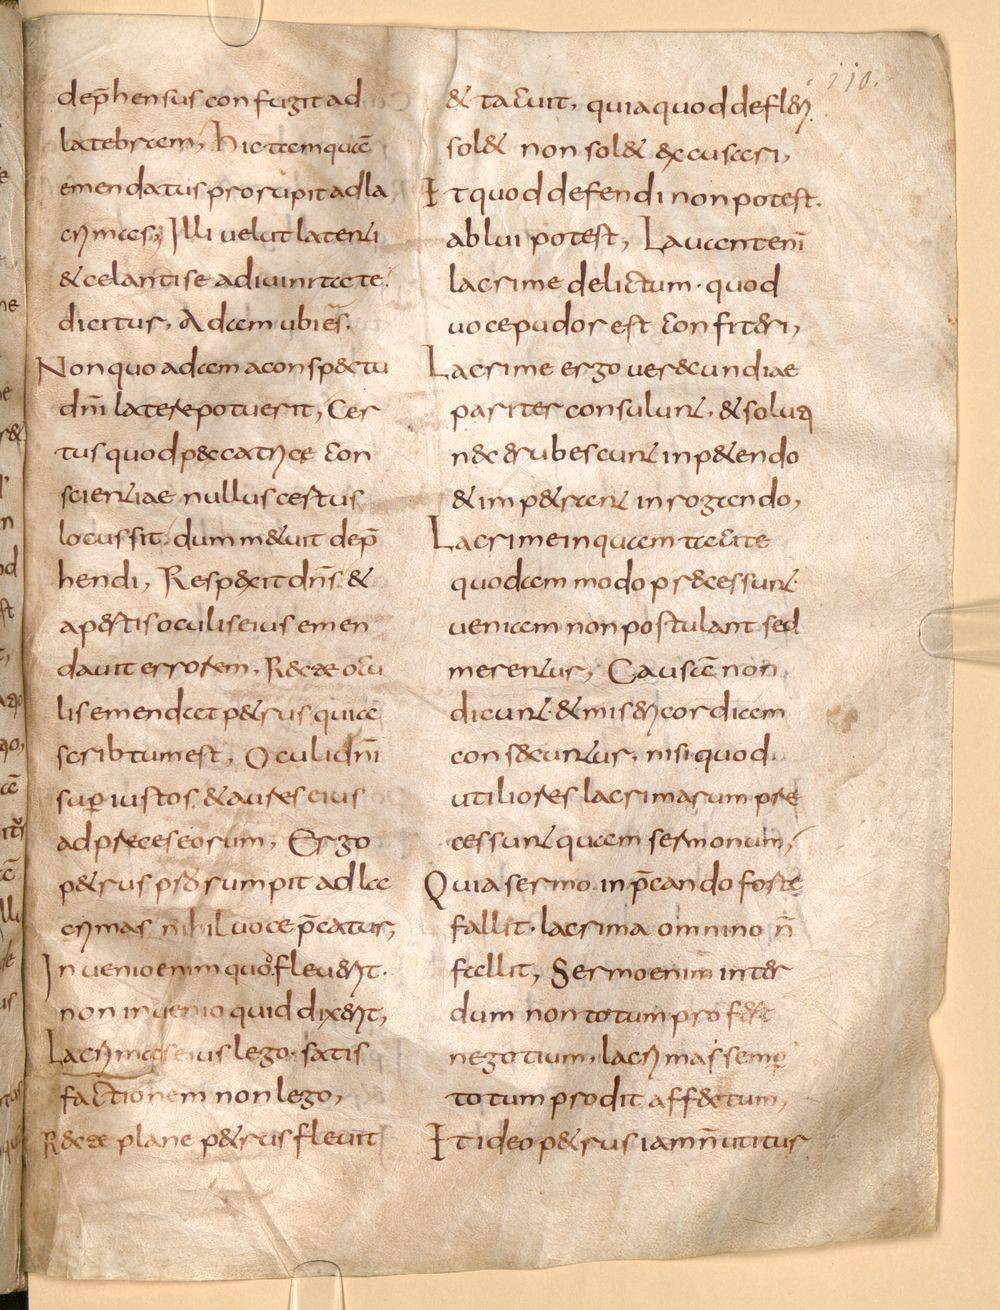 210.
dep̄hensus confugit ad
latebram, hic tamquā
emendatus prorupit ad la
crimas; Illi uelut lateri
& celanti se a diuinitate
dicitur, Adam ubi es.
Non quo adam a conspectu
dn̄i latere potuerit, Cer
tus quod peccatrice con
scientiae nullus estus
locus sit, dum metuit dep̄
hendi, Respexit dn̄s &
apertis oculis eius emen
dauit errorem, Recte ocu
lis emendat petrus quia
scribtum est, Oculi dn̄i
sup̱ iustos, & aures eius
ad preces eorum, Ergo
petrus prorumpit ad la
crimas nihil uoce p̄catur,
Inuenio enim quod fleuerit.
non inuenio quid dixerit,
Lacrimas eius lego. satis
factionem non lego,
Recte plane petrus fleuit
& tacuit, quia quod defleri
solet non solet excusari,
Et quod defendi non potest.
ablui potest, Lauant eni̅
lacrime delictum. quod
uoce pudor est confiteri,
Lacrime ergo uerecundiae
pariter consulunt. & saluti
nec erubescunt in petendo
& impetrant in rogando,
Lacrime inquam tacite
quodammodo preces sunt
ueniam non postulant sed
merentur, Causā non
dicunt & misericordiam
consecuntur, nisi quod
utiliores lacrimarum pre
ces sunt quam sermonum,
Quia sermo in p̄cando forte
fallit. lacrima omnino n̄
fallit, Sermo enim inter
dum non totum profert
negotium, lacrimas semp̱
totum prodit affectum,
Et ideo petrus iam n̄ utitur